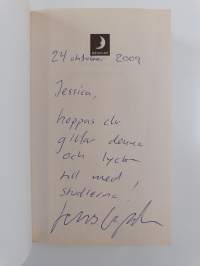 24 oktober 2009
Jessica,
hoppas du
gillar denna
och lycka
till med
studierna!